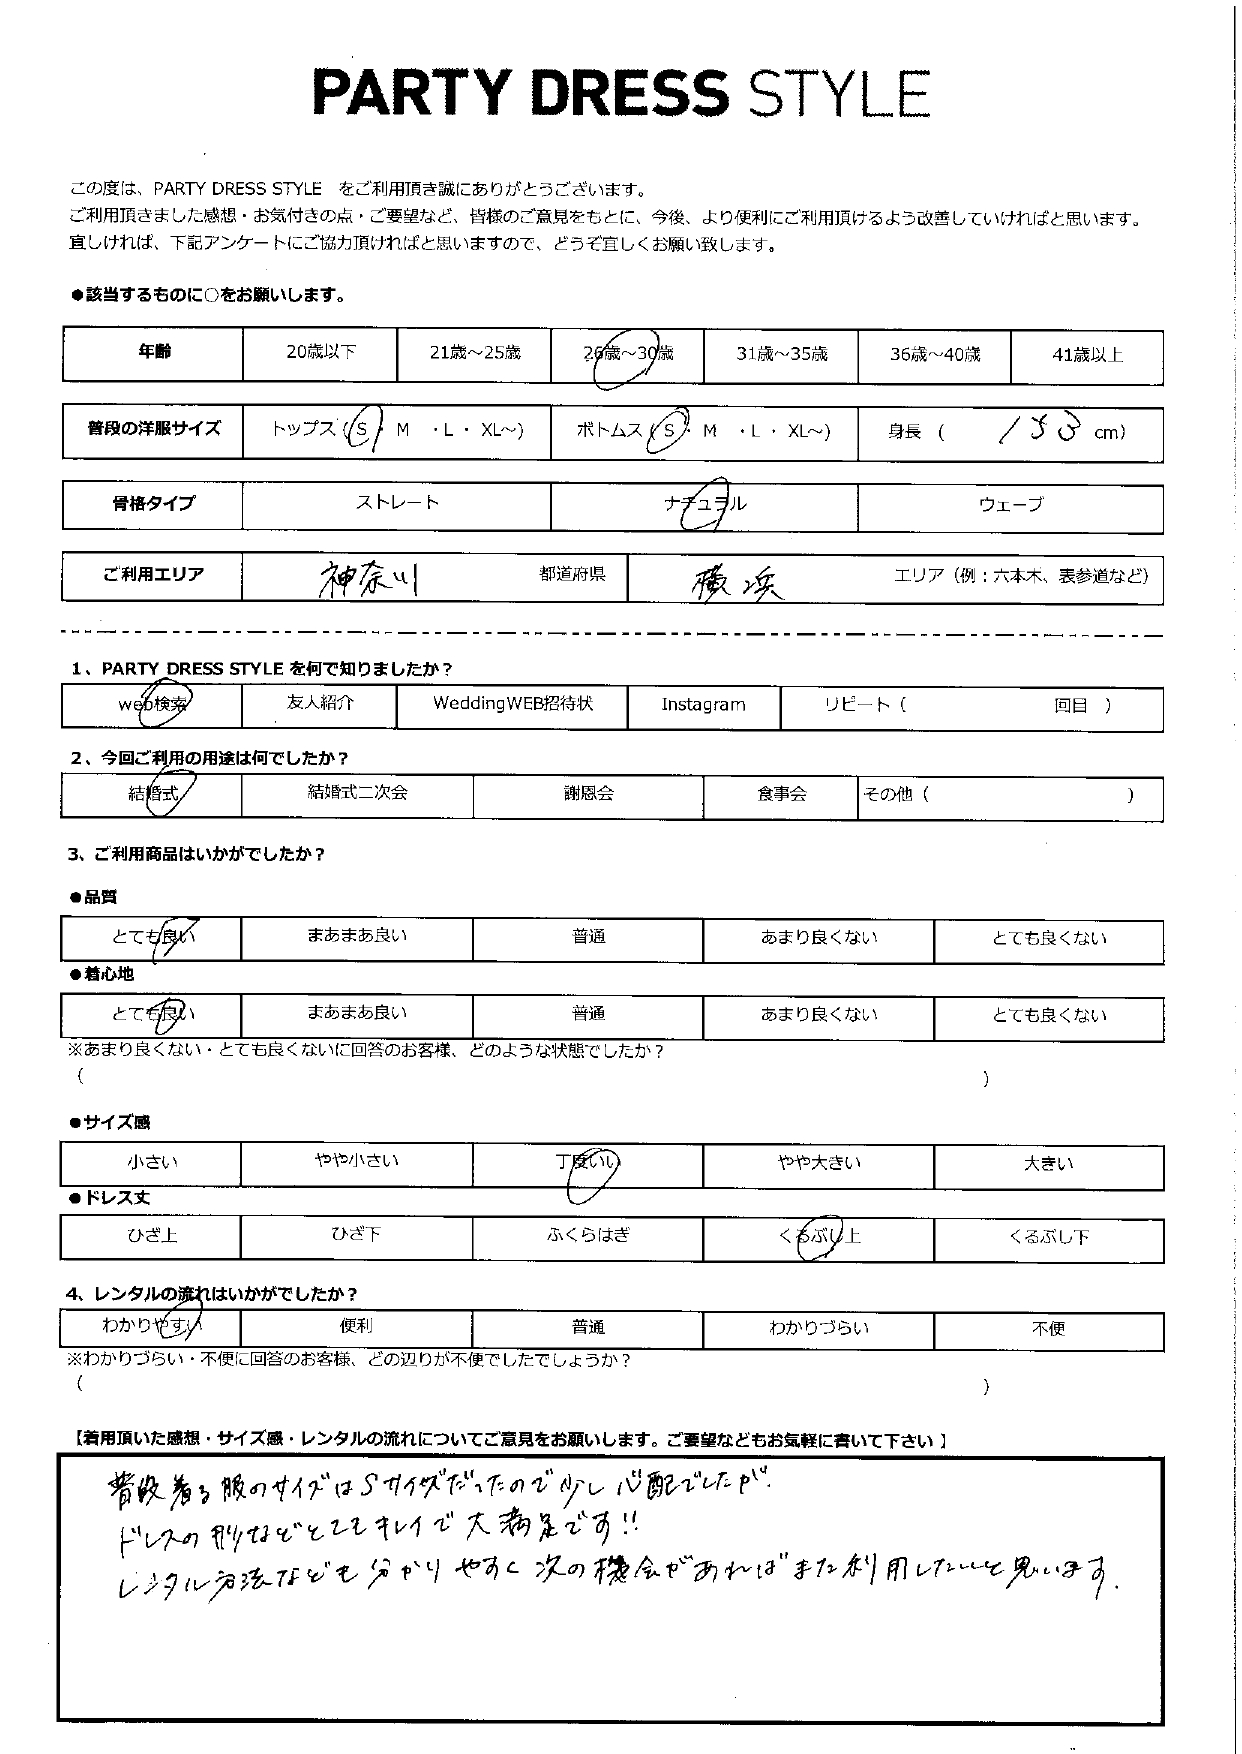 PARTY DRESS STYLE
この度は、PARTY DRESS STYLE　をご利用頂き誠にありがとうございます。
ご利用頂きました感想・お気付きの点・ご要望など、皆様のご意見をもとに、今後、より便利にご利用頂けるよう改善していければと思います。
宜しければ、下記アンケートにご協力頂ければと思いますので、どうぞ宜しくお願い致します。
●該当するものに○をお願いします。
年齢 20歳以下 21歳～25歳 26歳～30歳 31歳～35歳 36歳～40歳 41歳以上
普段の洋服サイズ トップス（S・M ・L・XL～） ボトムス（S・M ・L・XL～） 身長（ 153 cm）
骨格タイプ ストレート ナチュラル ウェーブ
ご利用エリア 神奈川 都道府県 横浜 エリア（例：六本木、表参道など）
1、PARTY DRESS STYLE を何で知りましたか？
web検索 友人紹介 WeddingWEB招待状 Instagram リピート（ 回目 ）
2、今回ご利用の用途は何でしたか？
結婚式 結婚式二次会 謝恩会 食事会 その他（ ）
3、ご利用商品はいかがでしたか？
●品質
とても良い まあまあ良い 普通 あまり良くない とても良くない
●着心地
とても良い まあまあ良い 普通 あまり良くない とても良くない
※あまり良くない・とても良くないに回答のお客様、どのような状態でしたか？
（ ）
●サイズ感
小さい やや小さい 丁度いい やや大きい 大きい
●ドレス丈
ひざ上 ひざ下 ふくらはぎ くるぶし上 くるぶし下
4、レンタルの流れはいかがでしたか？
わかりやすい 便利 普通 わかりづらい 不便
※わかりづらい・不便に回答のお客様、どの辺りが不便でしたでしょうか？
（ ）
【着用頂いた感想・サイズ感・レンタルの流れについてご意見をお願いします。ご要望などもお気軽に書いて下さい 】
普段着る服のサイズはSサイズだったので少し心配でしたが.
ドレスの形などとてもキレイで大満足です!!
レンタル方法なども分かりやすく次の機会があればまた利用したいと思います.